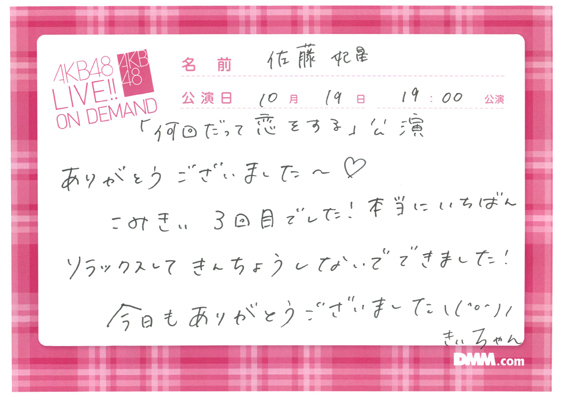 AKB48
LIVE!!
ON DEMAND
AKB
48
名前 佐藤 妃星
公演日 10月 19日 19:00 公演
「何回だって恋をする」公演
ありがとうございました〜♡
こみきぃ 3回目でした！本当にいちばん
リラックスして きんちょうしないで できました！
今日も ありがとうございました\(^o^)/
きぃちゃん
DMM.com